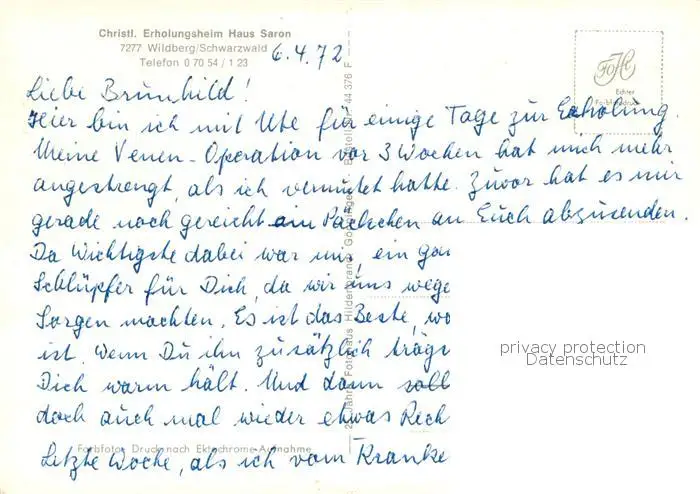 Christl. Erholungsheim Haus Saron
7277 Wildberg/Schwarzwald
Telefon 0 70 54 / 1 23
6.4.72
Echter
Liebe Brunhild!
Hier bin ich mit Ute für einige Tage zur Erholung.
Meine Venen-Operation vor 3 Wochen hat mich mehr
angestrengt, als ich vermutet hatte. Zuvor hat es mir
gerade noch gereicht ein Päckchen an Euch abzusenden.
Da Wichtigste dabei war uns, ein gan
Schlüpfer für Dich, da wir uns wege
Sorgen machten. Es ist das Beste, wo
ist. Wenn Du ihn zusätzlich trägs
Dich warm hält. Und dann soll
doch auch mal wieder etwas Rech
Letzte Woche, als ich vom Kranke
Farbfoto: Druck nach Ektachrome-Aufnahme
privacy protection
Datenschutz